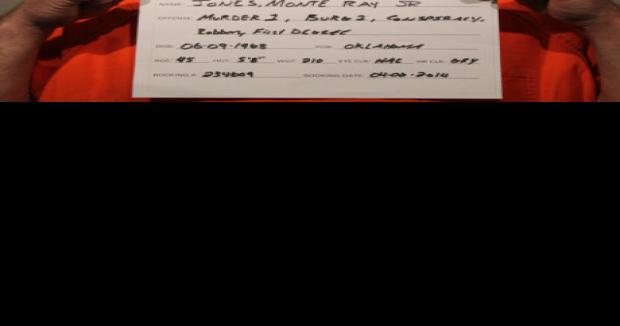 NAME: JONES, MONTE RAY JR
OFFENSE: MURDER 1, BURG 1, CONSPIRACY,
Robbery First DEGREE
DOB: 06-09-1968 POB: OKLAHOMA
AGE: 45 HGT: 5'8" WGT: 210 EYE CLR: HAZ HR CLR: GRY
BOOKING #: BOOKING DATE: